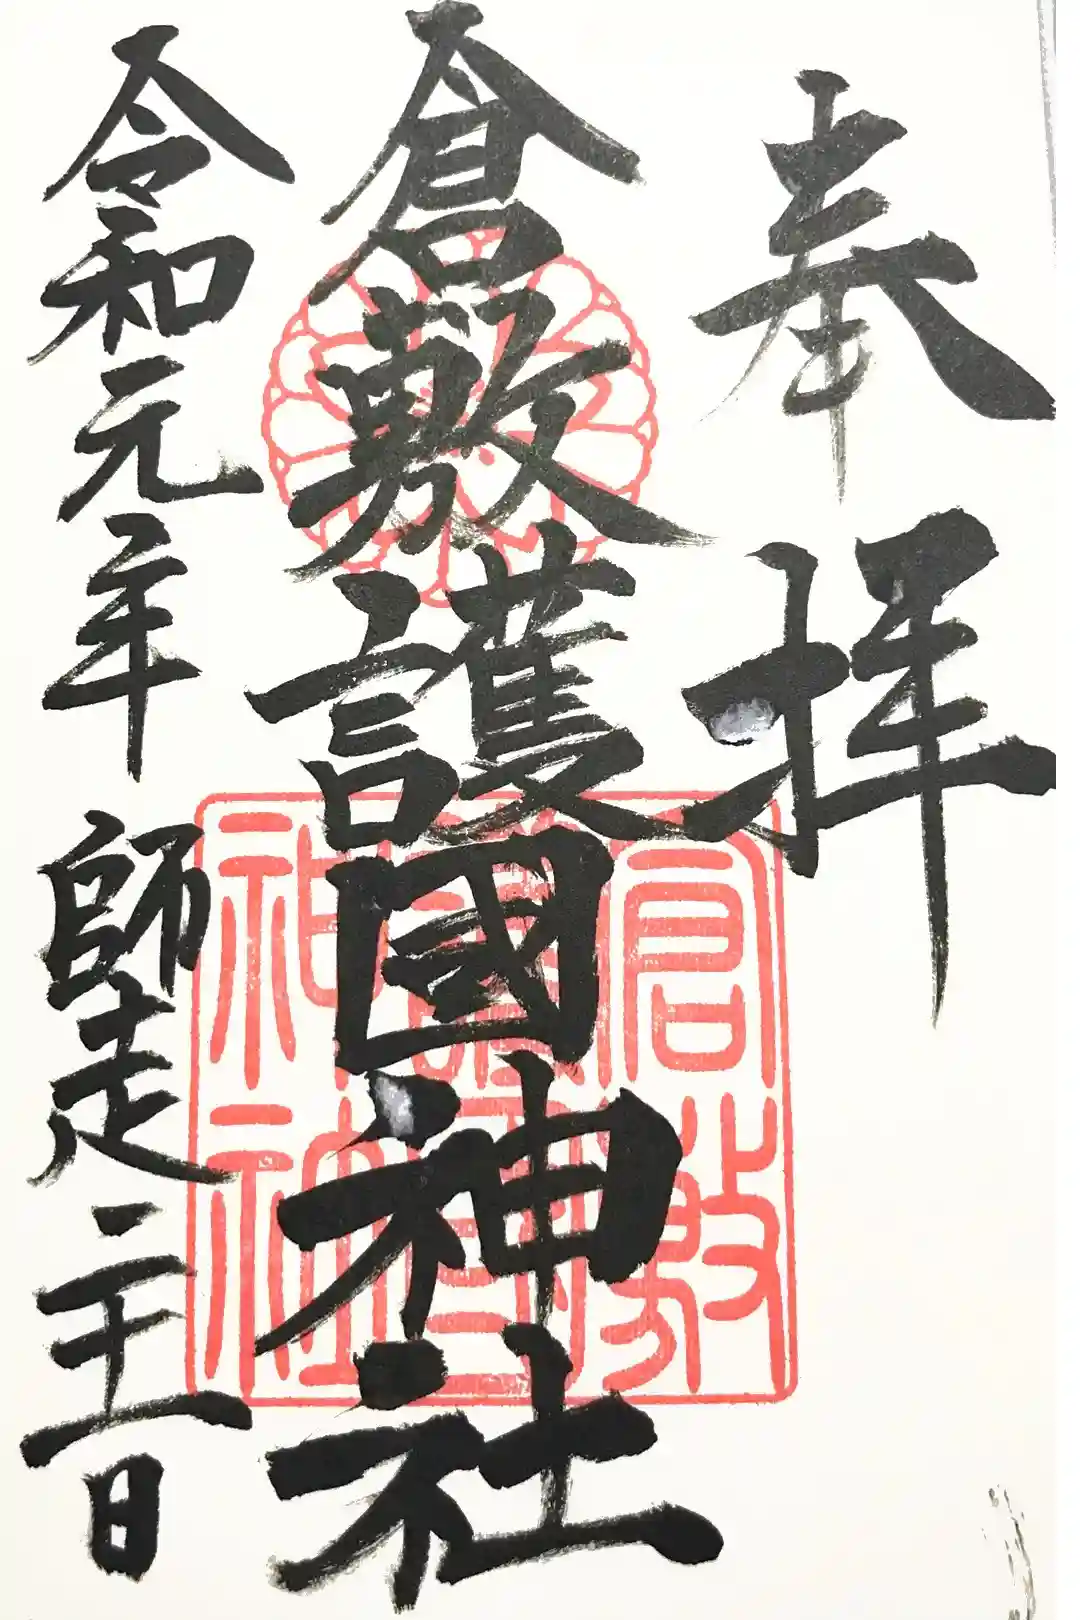 奉拝
倉敷護國神社
令和元年 師走 二十一日
倉敷
神社